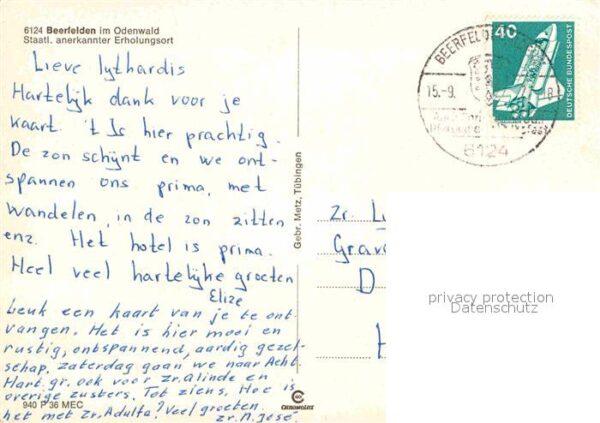 6124 Beerfelden im Odenwald
Staatl. anerkannter Erholungsort
Lieve lythardis
Hartelijk dank voor je
kaart. 't Is hier prachtig.
De zon schijnt en we ont-
spannen ons prima, met
wandelen, in de zon zitten
enz. Het hotel is prima.
Heel veel hartelijke groeten
Elize
Leuk een kaart van je te ont-
vangen. Het is hier mooi en
rustig, ontspannend, aardig gezel-
schap. Zaterdag gaan we naar Acht.
Hart. gr. ook voor zr. Alinde en
overige zusters. Tot ziens. Hoe is
het met zr. Adulfa? Veel groeten.
zr. M. José
940 P 36 MEC
Gebr. Metz, Tübingen
CHROMOLUX
BEERFELD
15.-9.
6124
40
DEUTSCHE BUNDESPOST
zr.
Grav
D
H
privacy protection
Datenschutz